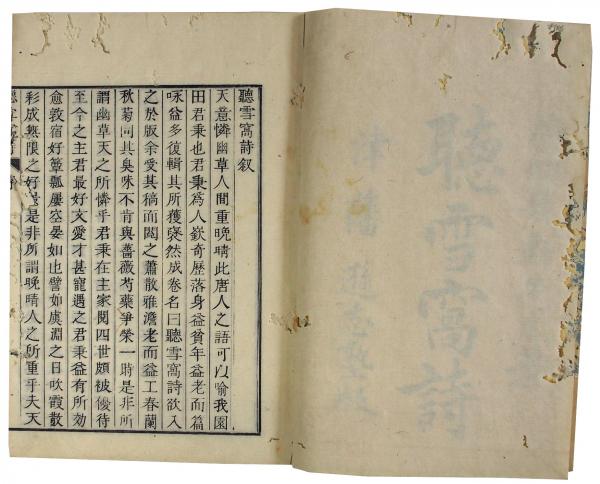 聽雪窩詩叙
天意憐幽草人間重晚晴此唐人之語可以喻我園
田君秉也君秉爲人嶔奇歷落身益貧年益老而篇
咏益多復輯其所獲裒然成卷名曰聽雪窩詩欲入
之於版余受其稿而閱之蕭散雅澹老而益工春蘭
秋菊同其臭味不肯與薔薇芍藥爭榮一時是非所
謂幽草天之所憐乎君秉在主家閱四世頗被優待
至今之主君最好文愛才甚寵遇之君秉益有所効
愈敦宿好簞瓢屢空晏如也譬如虞淵之日吹霞散
彩成無限之好是非所謂晚晴人之所重乎夫天
聽雪窩詩